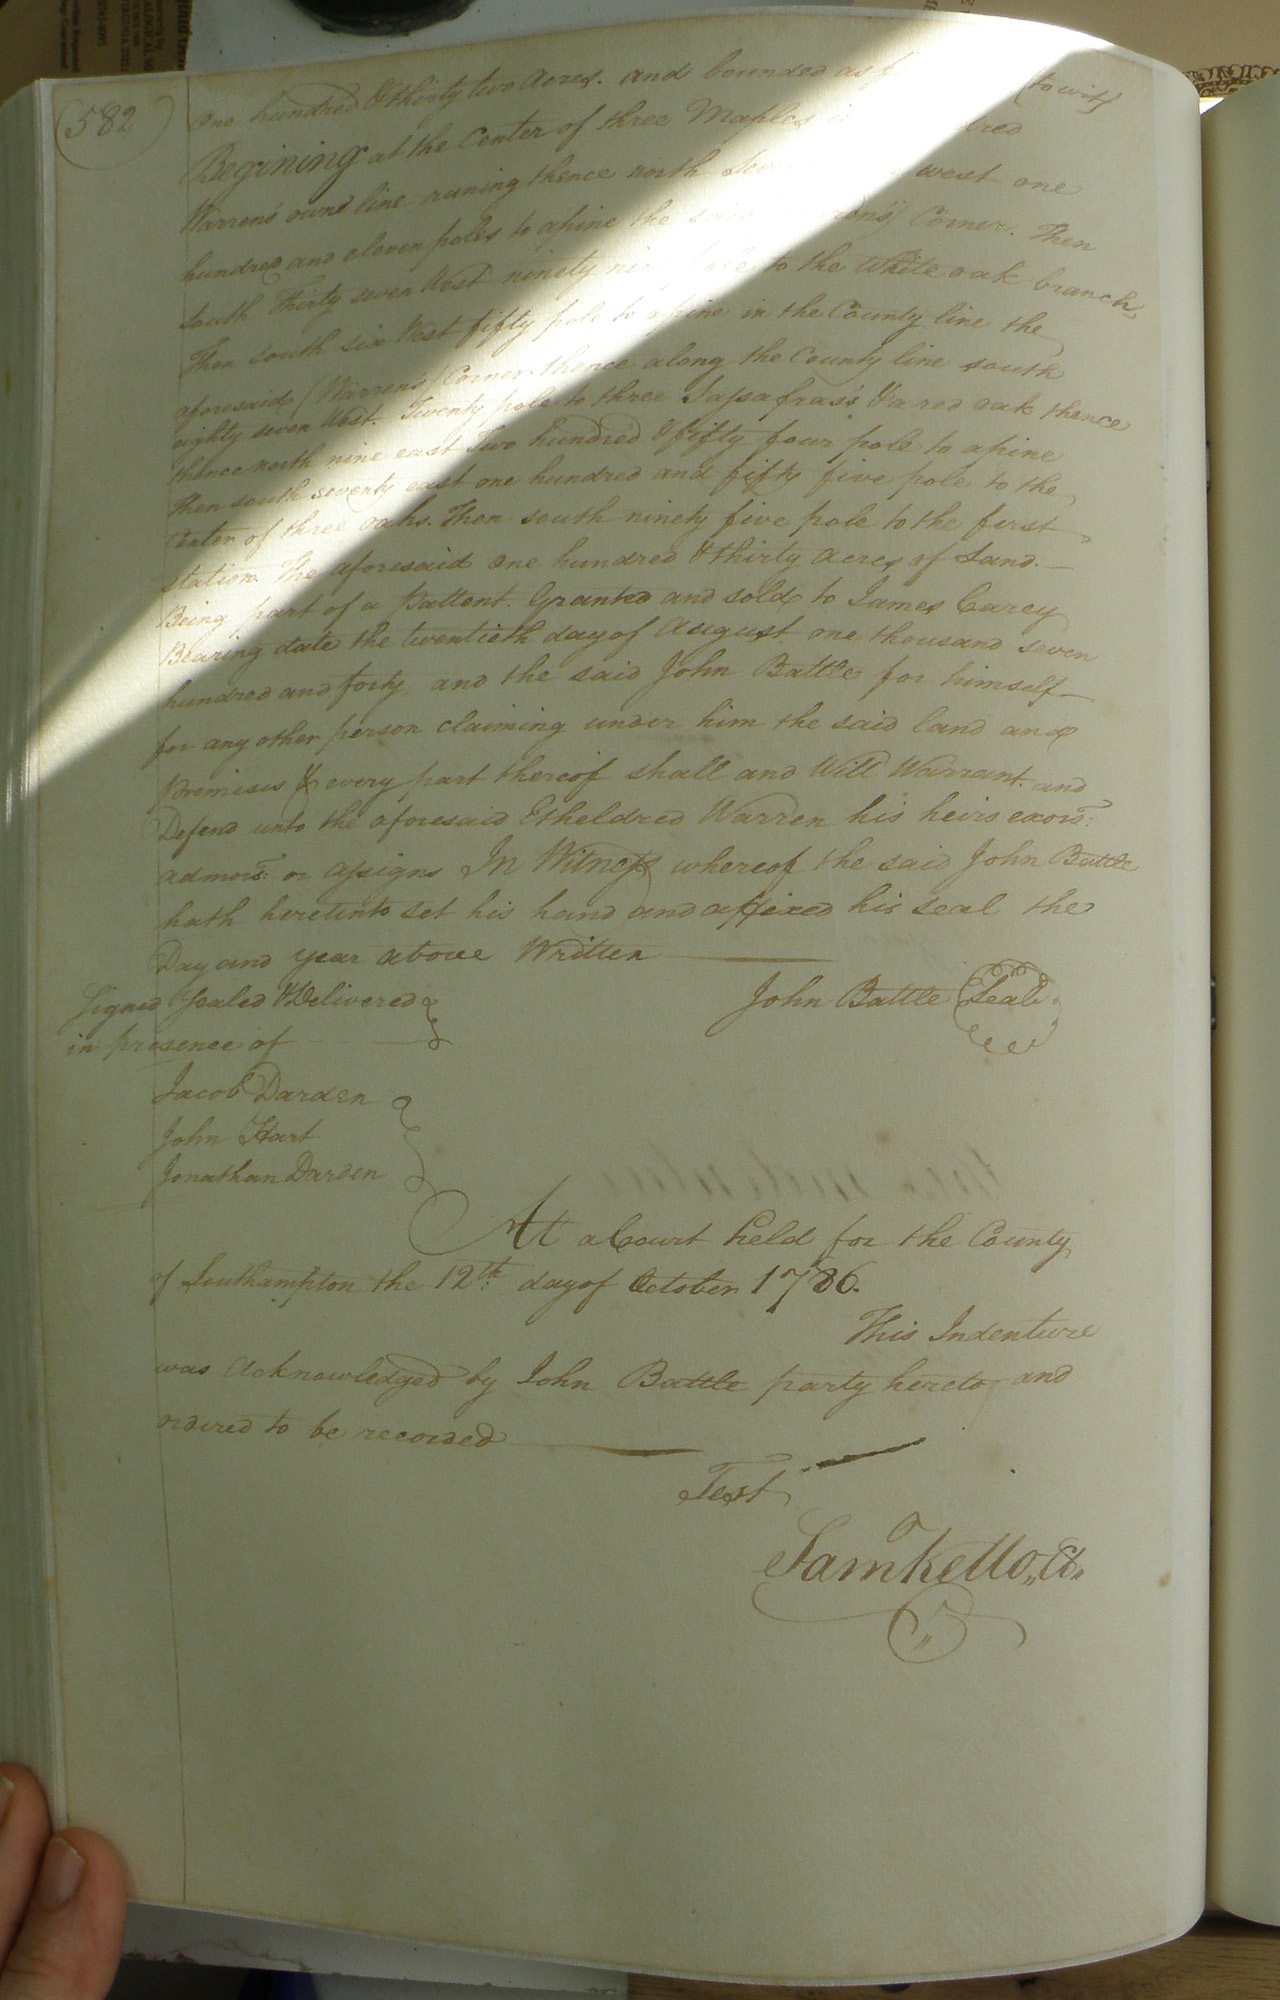 582
One hundred & thirty two acres. and bounded as (to wit)
Begining at the Center of three Maples
Warren's owne line runing thence north west one
hundred and eleven poles to a pine the said Corner. Then
South thirty seven West ninety nine pole to the White oak branch,
Then south six West fifty pole to a pine in the County line the
aforesaid (Warren's) Corner thence along the County line south
eighty seven West. Twenty pole to three Sassafras's & a red oak thence
thence north nine east Two hundred & fifty four pole to a pine
Then south seventy east one hundred and fifty five pole to the
Center of three oaks. Then south ninety five pole to the first
station. The aforesaid One hundred & thirty acres of Land.
Being part of a Pattent. Granted and sold to James Carey
Bearing date the twentieth day of August one thousand seven
hundred and forty, and the said John Battle for himself
for any other person claiming under him the said land and
Premises & every part thereof shall and Will Warrant and
Defend unto the aforesaid Etheldred Warren his heirs exors:
admors: or assigns In Witness whereof the said John Battle
hath hereunto set his hand and affixed his seal the
Day and year above Written
Signed Sealed & Delivered
in presence of
John Battle (Seal)
Jacob Darden
John Hart
Jonathan Darden
At a Court held for the County
of Southampton the 12th. day of October 1786.
This Indenture
was Acknowledged by John Battle party hereto and
ordered to be recorded
Test
Saml Kello, Cl.